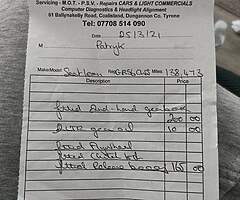 Servicing - M.O.T. - P.S.V. - Repairs CARS & LIGHT COMMERCIALS
Computer Diagnostics & Headlight Alignment
61 Ballynahelly Road, Coalisland, Dungannon Co. Tyrone
Tel: 07708 514 090
Date 25/3/21
M Patryk
Make/Model Seat Leon Reg Miles 138,473
fitted 2nd-hand gearbox
200 00
2 LTR gear oil 10 00
fitted Flywheel
fitted Clutch kit
fitted Release 165 00